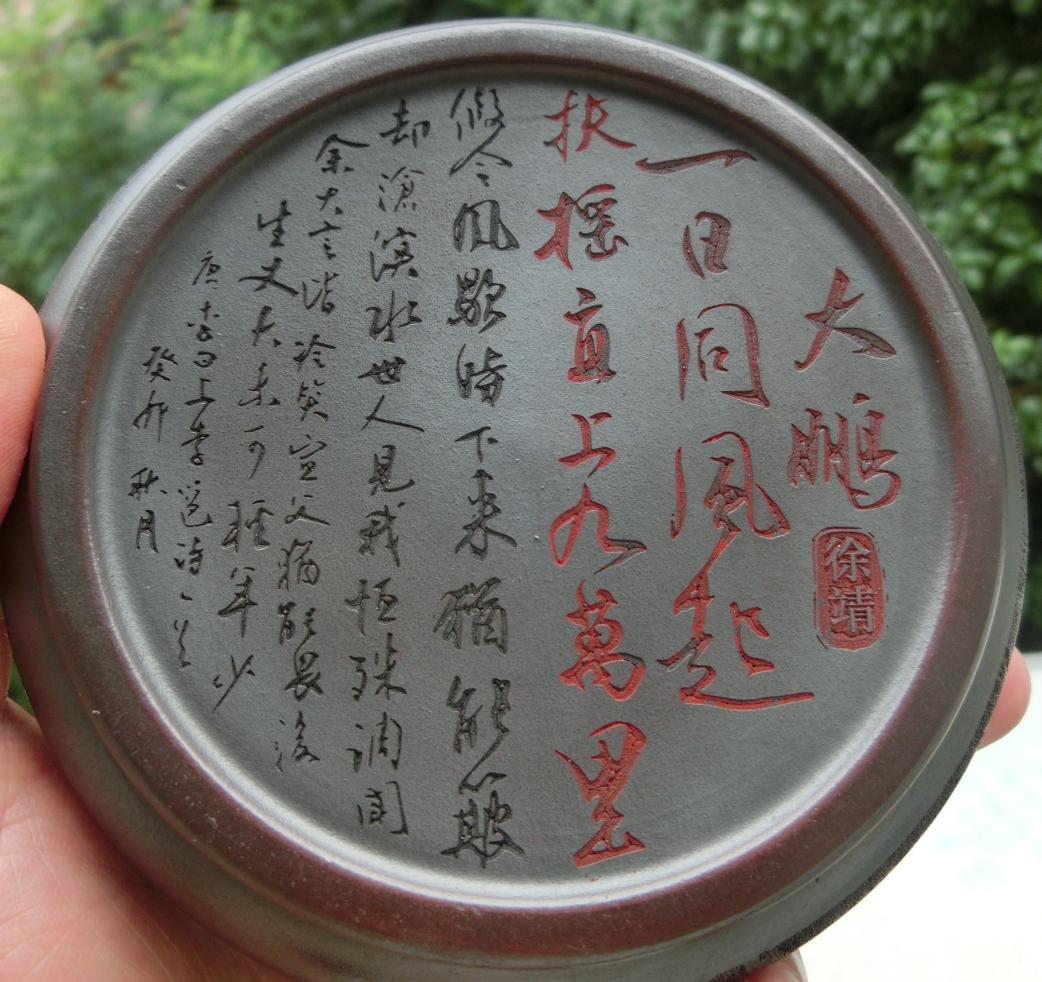 大鹏
徐靖
一日同風起
扶摇直上九萬里
假令风歇時下来猶能簸
却滄溟水世人見我恒殊调闻
余大言皆冷笑宣父猶能畏後
生丈夫未可轻年少
唐李白上李邕诗一首
癸卯秋月